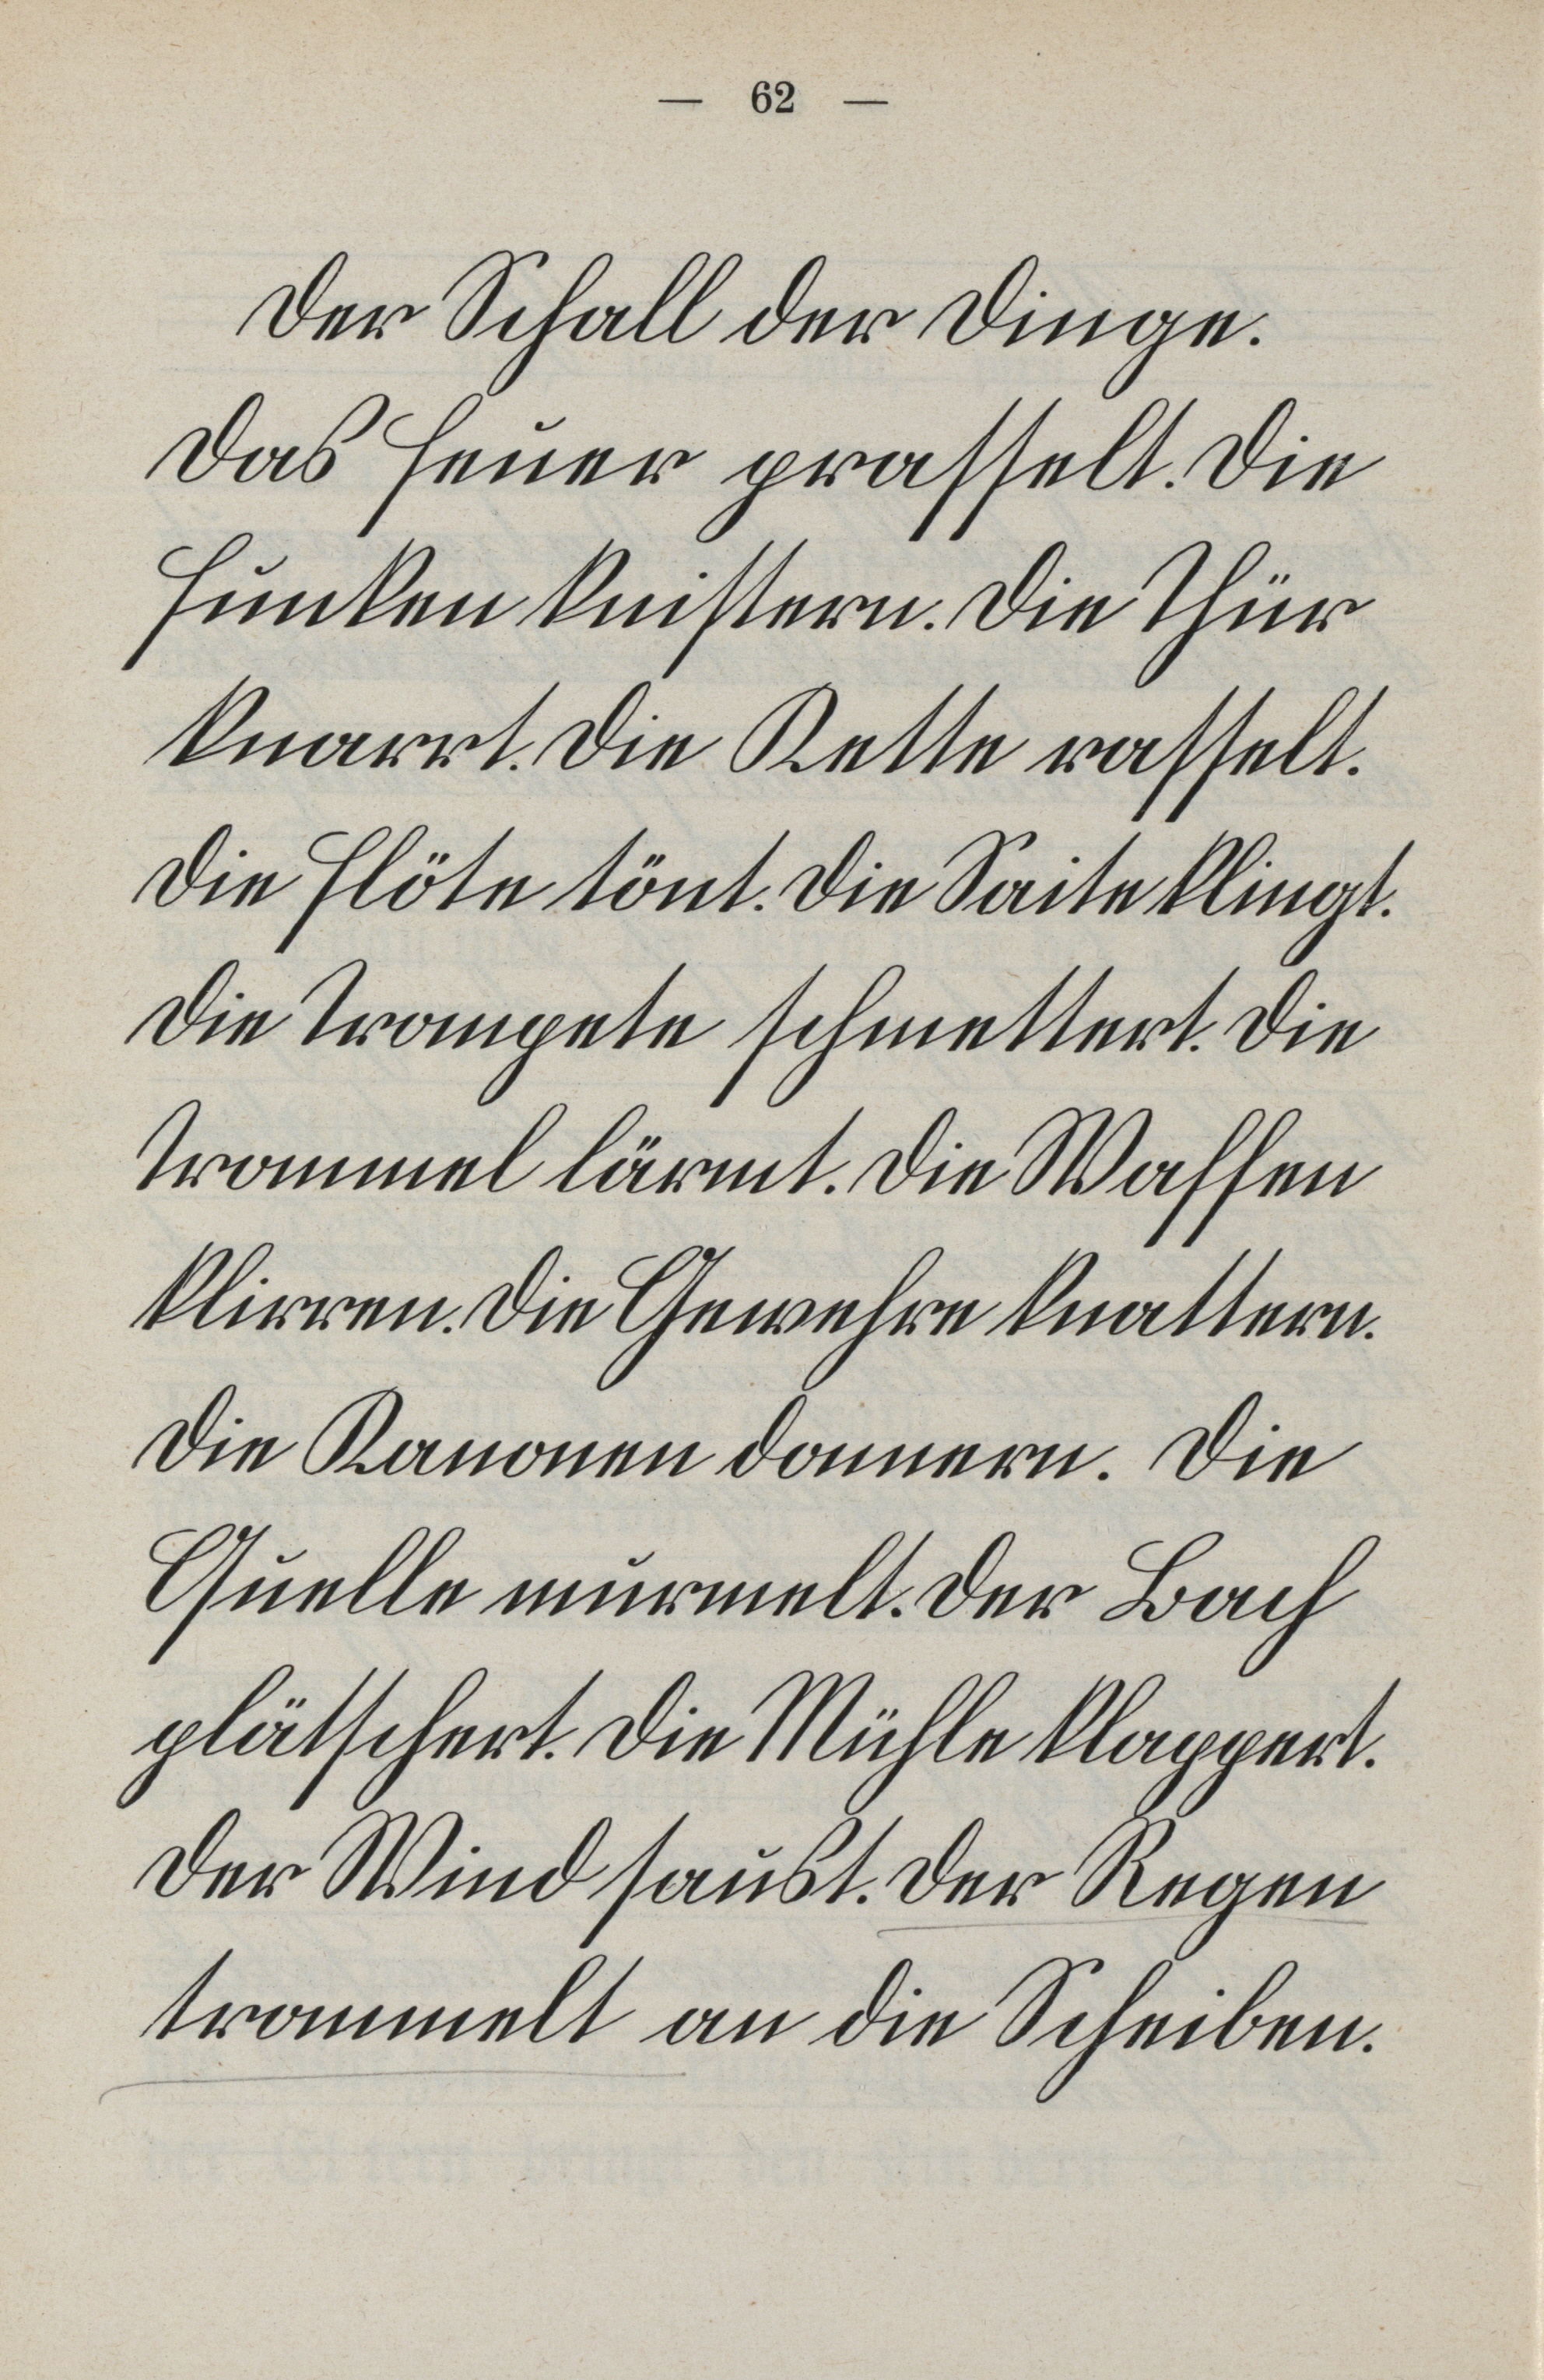 — 62 —
Der Schall der Dinge.
Das Feuer prasselt. Die
Funken knistern. Die Thür
knarrt. Die Kette rasselt.
Die Flöte tönt. Die Saite klingt.
Die Trompete schmettert. Die
Trommel lärmt. Die Waffen
klirren. Die Gewehre knattern.
Die Kanonen donnern. Die
Quelle murmelt. Der Bach
plätschert. Die Mühle klappert.
Der Wind saust. Der Regen
trommelt an die Scheiben.